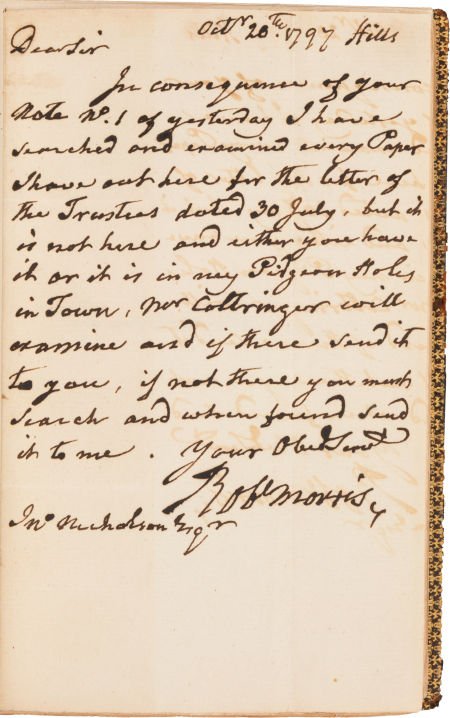 Octr. 28th. 1797 Hills
Dear Sir
In consequence of your
Note No. 1 of yesterday I have
searched and examined every Paper
I have out here for the letter of
the Trustees dated 30 July, but it
is not here and either you have
it or it is in my Pidgeon Holes
in Town, Mr Cottringer will
examine and if there send it
to you, if not there you must
search and when found send
it to me. Your Obed Servt
Robt Morris
Jno Nicholson Esqr